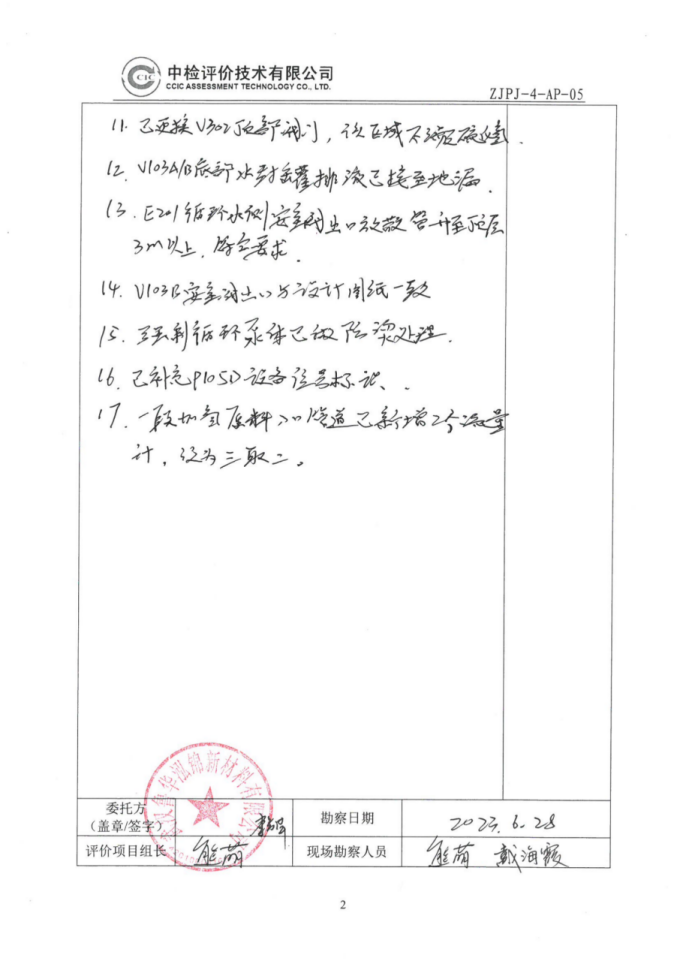 CCIC
中检评价技术有限公司
CCIC ASSESSMENT TECHNOLOGY CO., LTD.
ZJPJ-4-AP-05
11. 已更换V302顶部阀门，该区域不
12. V103A/B底部水封罐排液已接至地漏.
13. E201循环水侧安全阀出口放散管升至顶层
3m以上，符合要求.
14. V103B安全阀出口与设计图纸一致
15. 循环泵体已做防
处理.
16. 已补充P105D设备位号标识.
17. 一段加氢原料入口管道已新增2个流量
计，设为三取二。
华泓锦新材料有限公司
委托方
（盖章/签字）
勘察日期
2023.6.28
评价项目组长
熊荫
现场勘察人员
熊荫 戴海霞
2